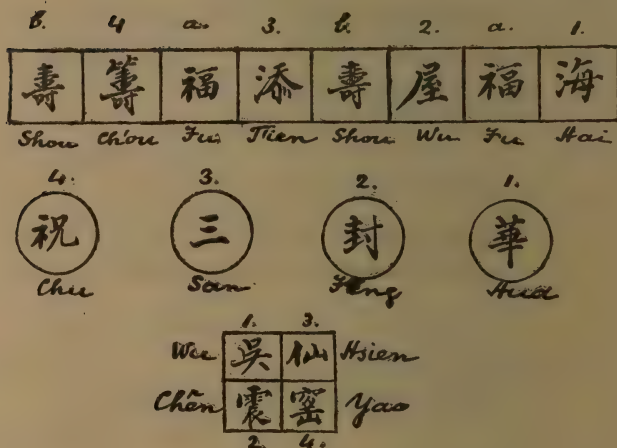 b. 4 a. 3. b. 2. a. 1.
壽 籌 福 添 壽 屋 福 海
Shou Ch'ou Fu T'ien Shou Wu Fu Hai
4. 3. 2. 1.
祝 三 封 華
Chu San Fêng Hua
1. 3.
Wu 吳 仙 Hsien
Chên 震 窰 Yao
2. 4.